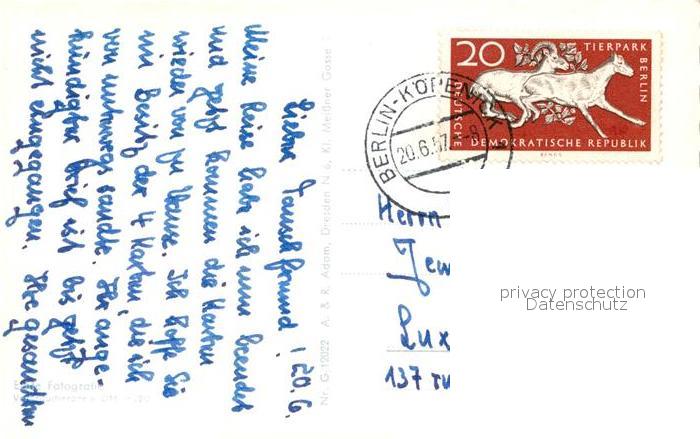 20
TIERPARK BERLIN
DEUTSCHE DEMOKRATISCHE REPUBLIK
BERLIN-KÖPENICK
20.6.57.-8
Lieber Tauschfreund! 20.6.
Meine Reise habe ich nun beendet
und jetzt kommen die Karten
wieder von zu Hause. Ich hoffe Sie
im Besitz der 4 Karten, die ich
von unterwegs sandte. Ihr ange-
kündigter Brief ist bis jetzt
nicht eingegangen. Ihre gesandten
Herrn
Lux
137 ru
Nr. G-12022 A. & R. Adam, Dresden N 6, Kl. Meißner Gasse
Echte Fotografie
privacy protection
Datenschutz